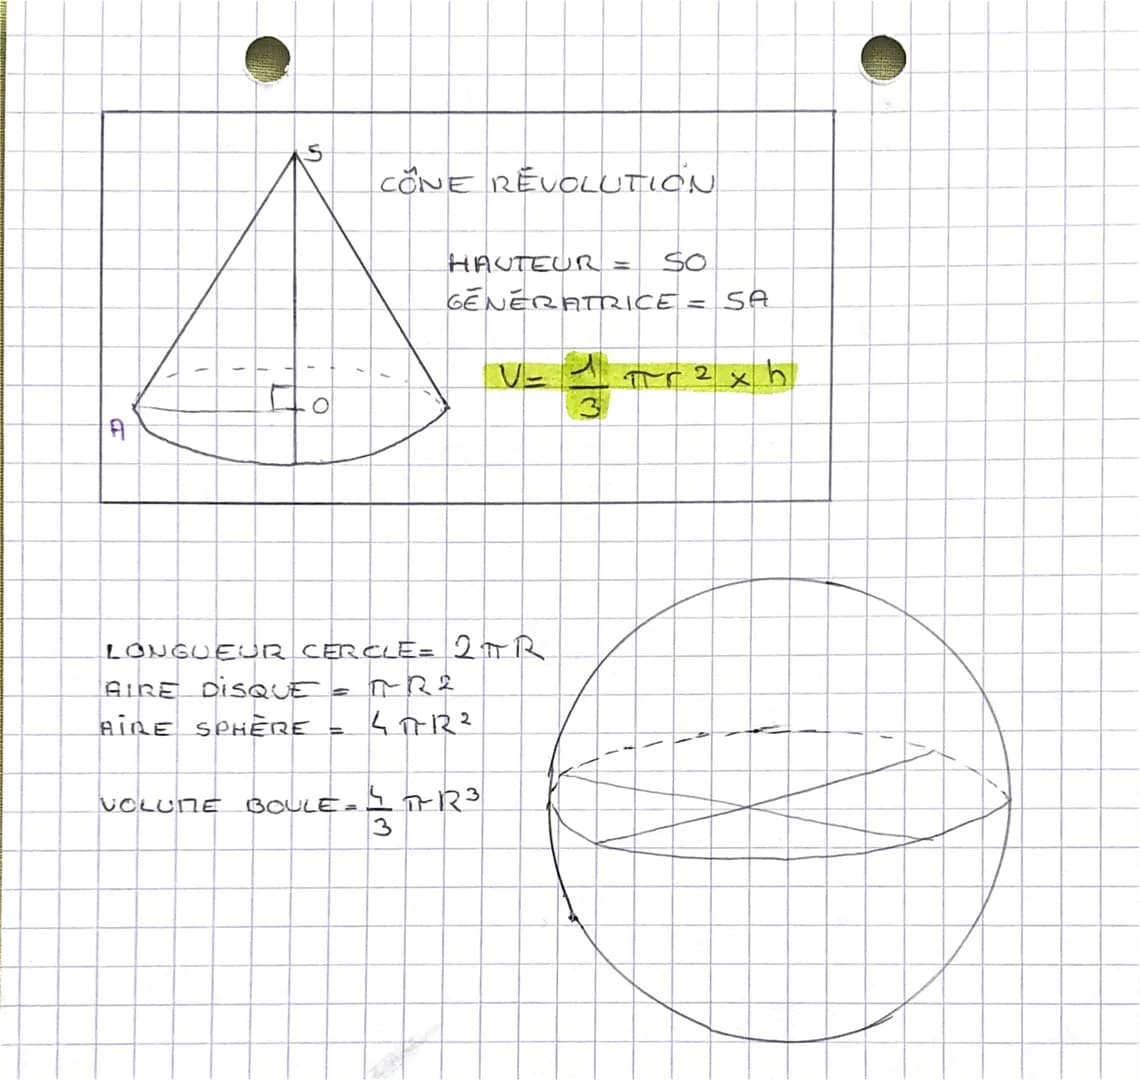 S
CÔNE RÉVOLUTION
HAUTEUR = SO
GÉNÉRATRICE = SA
V = 1/3 πr² × h
O
A
LONGUEUR CERCLE = 2πR
AIRE DISQUE = πR2
AIRE SPHÈRE = 4πR²
VOLUME BOULE = 4/3 πR³